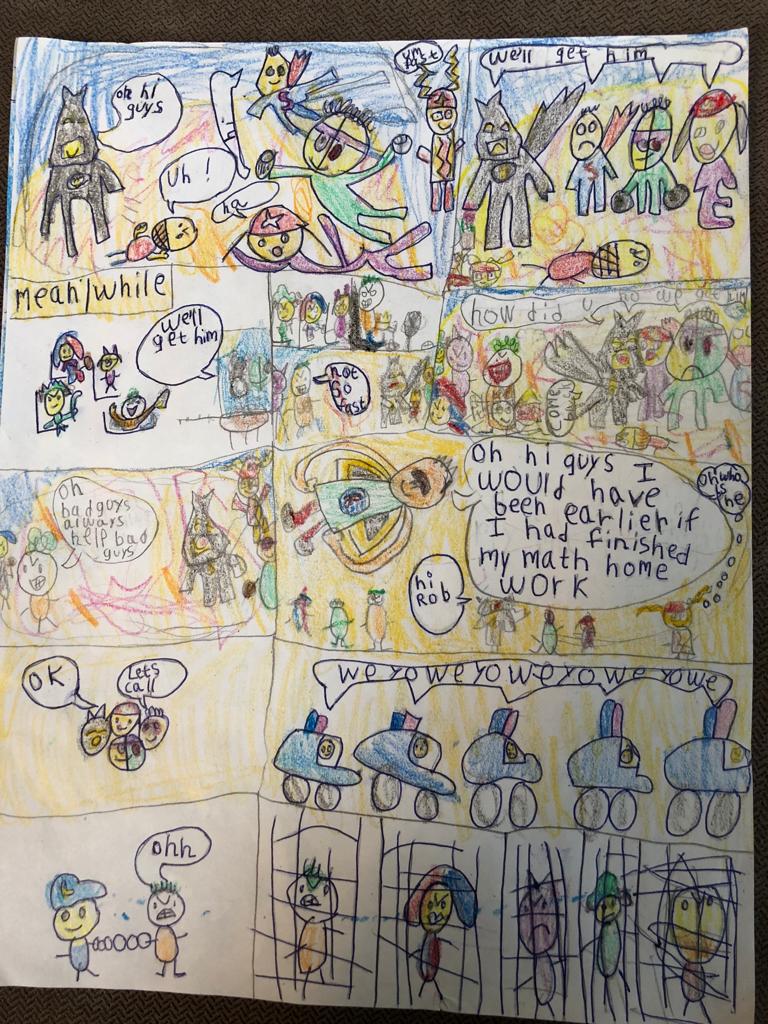 oh hi
guys
Uh !
ha
we'll get him
meanwhile
we'll
get him
not
so
fast
how did u
oh
bad guys
always
help bad
guys
oh hi guys I
would have
been earlier if
I had finished
my math home
work
hi
Rob
OK
Lets
call
weyoweyoweyoweyowe
ohh